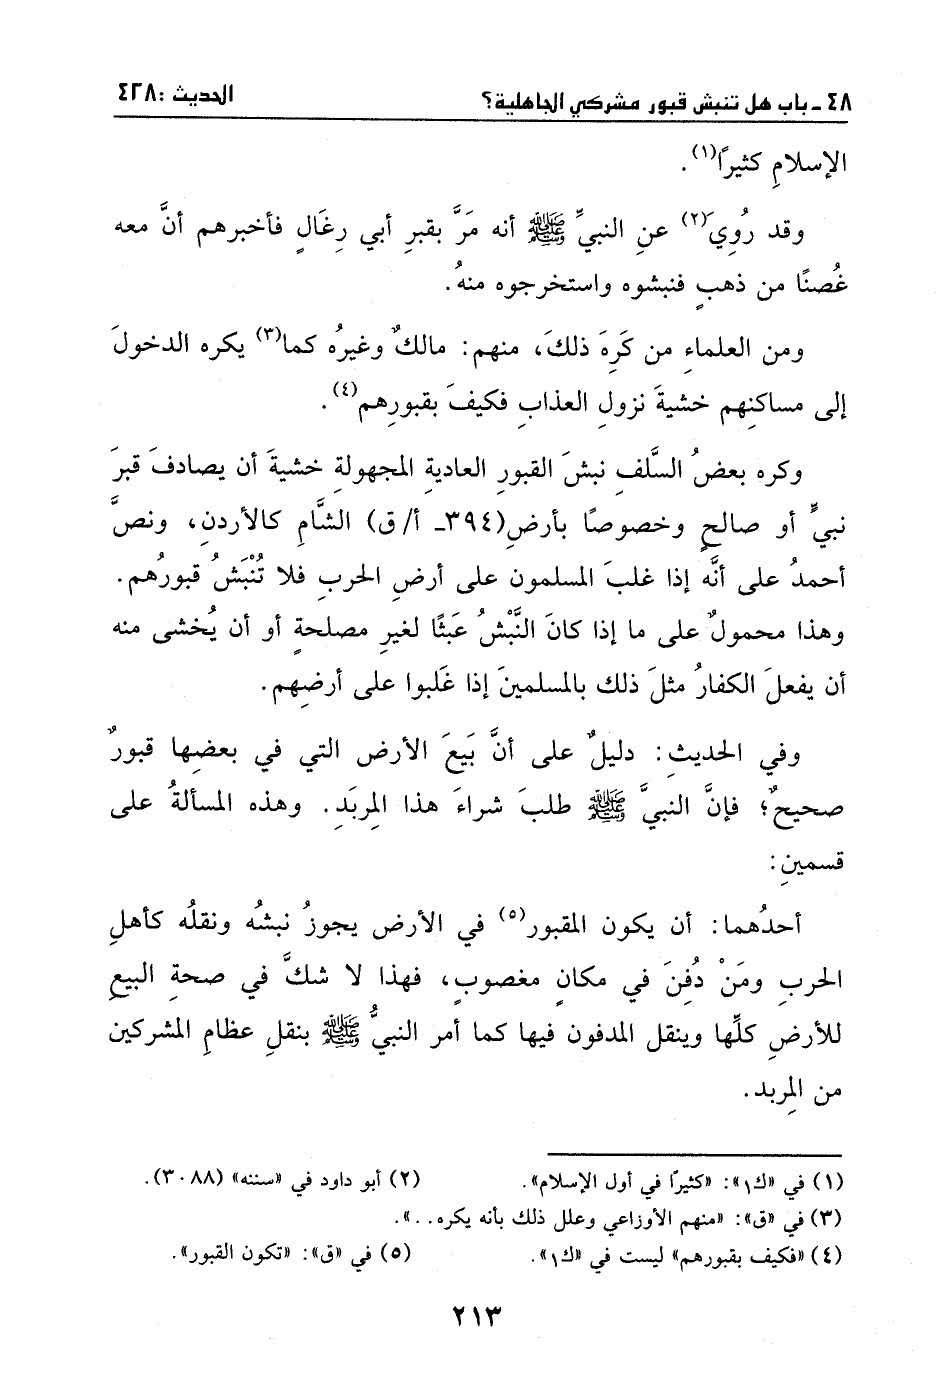 ٤٨ ـ باب هل تنبش قبور مشركي الجاهلية؟ الحديث : ٤٢٨
الإسلامِ كثيرًا(١).
وقد رُوِيَ(٢) عنِ النبيِّ ﷺ أنه مَرَّ بقبرِ أبي رِغَالٍ فأخبرهم أنَّ معه
غُصنًا من ذهبٍ فنبشوه واستخرجوه منهُ.
ومن العلماءِ من كَرِهَ ذلكَ، منهم: مالكٌ وغيرُه كما(٣) يكره الدخولَ
إلى مساكنِهم خشيةَ نزولِ العذابِ فكيفَ بقبورِهم(٤).
وكره بعضُ السَّلفِ نبشَ القبورِ العاديةِ المجهولةِ خشيةَ أن يصادفَ قبرَ
نبيٍّ أو صالحٍ وخصوصًا بأرضِ(٣٩٤ـ أ/ق) الشَّامِ كالأردنِ، ونصَّ
أحمدُ على أنَّه إذا غلبَ المسلمون على أرضِ الحربِ فلا تُنْبَشُ قبورُهم.
وهذا محمولٌ على ما إذا كانَ النَّبْشُ عَبَثًا لغيرِ مصلحةٍ أو أن يُخشى منه
أن يفعلَ الكفارُ مثلَ ذلك بالمسلمينَ إذا غَلَبوا على أرضِهم.
وفي الحديثِ: دليلٌ على أنَّ بَيعَ الأرض التي في بعضِها قبورٌ
صحيحٌ؛ فإنَّ النبيَّ ﷺ طلبَ شراءَ هذا المِربَدِ. وهذه المسألةُ على
قسمينِ:
أحدُهما: أن يكون المقبور(٥) في الأرض يجوزُ نبشُه ونقلُه كأهلِ
الحربِ ومَنْ دُفِنَ في مكانٍ مغصوبٍ، فهذا لا شكَّ في صحةِ البيعِ
للأرضِ كلِّها وينقل المدفون فيها كما أمر النبيُّ ﷺ بنقلِ عظامِ المشركين
من المِربد.
(١) في «ك١»: «كثيرًا في أول الإسلام». (٢) أبو داود في «سننه» (٣٠٨٨).
(٣) في «ق»: «منهم الأوزاعي وعلل ذلك بأنه يكره..».
(٤) «فكيف بقبورهم» ليست في «ك١». (٥) في «ق»: «تكون القبور».
٢١٣